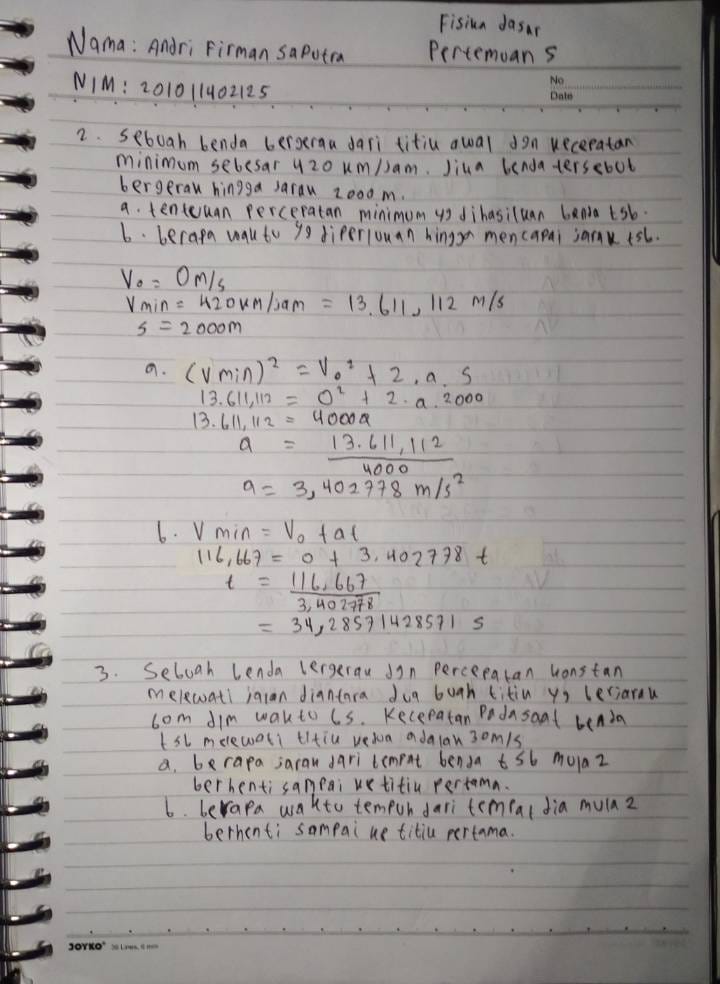 Fisika dasar
Nama: Andri Firman Saputra
Pertemuan 5
NIM: 201011402125
No
Date
2. Sebuah benda bergerak dari titik awal dgn kecepatan
minimum sebesar 420 km/jam. Jika benda tersebut
bergerak hingga jarak 2000 m.
a. tentukan percepatan minimum yg dihasilkan benda tsb.
b. berapa waktu yg diperlukan hingga mencapai jarak tsb.
V₀ = 0 m/s
Vmin = 420 km/jam = 13.611,112 m/s
s = 2000m
a. (Vmin)² = V₀² + 2.a.s
13.611,112 = 0² + 2.a.2000
13.611,112 = 4000a
a = 13.611,112
4000
a = 3,402778 m/s²
b. Vmin = V₀ + at
116,667 = 0 + 3.402778 t
t = 116,667
3,402778
= 34,28571428571 s
3. Sebuah benda bergerak dgn percepatan konstan
melewati jalan diantara dua buah titik yg berjarak
60m dlm waktu 6s. Kecepatan Pada saat benda
tsb melewati titik kedua adalah 30m/s
a. berapa jarak dari tempat benda tsb mula2
berhenti sampai ke titik pertama.
b. berapa waktu tempuh dari tempat dia mula2
berhenti sampai ke titik pertama.
JOYKO 30 Lines, 8 mm